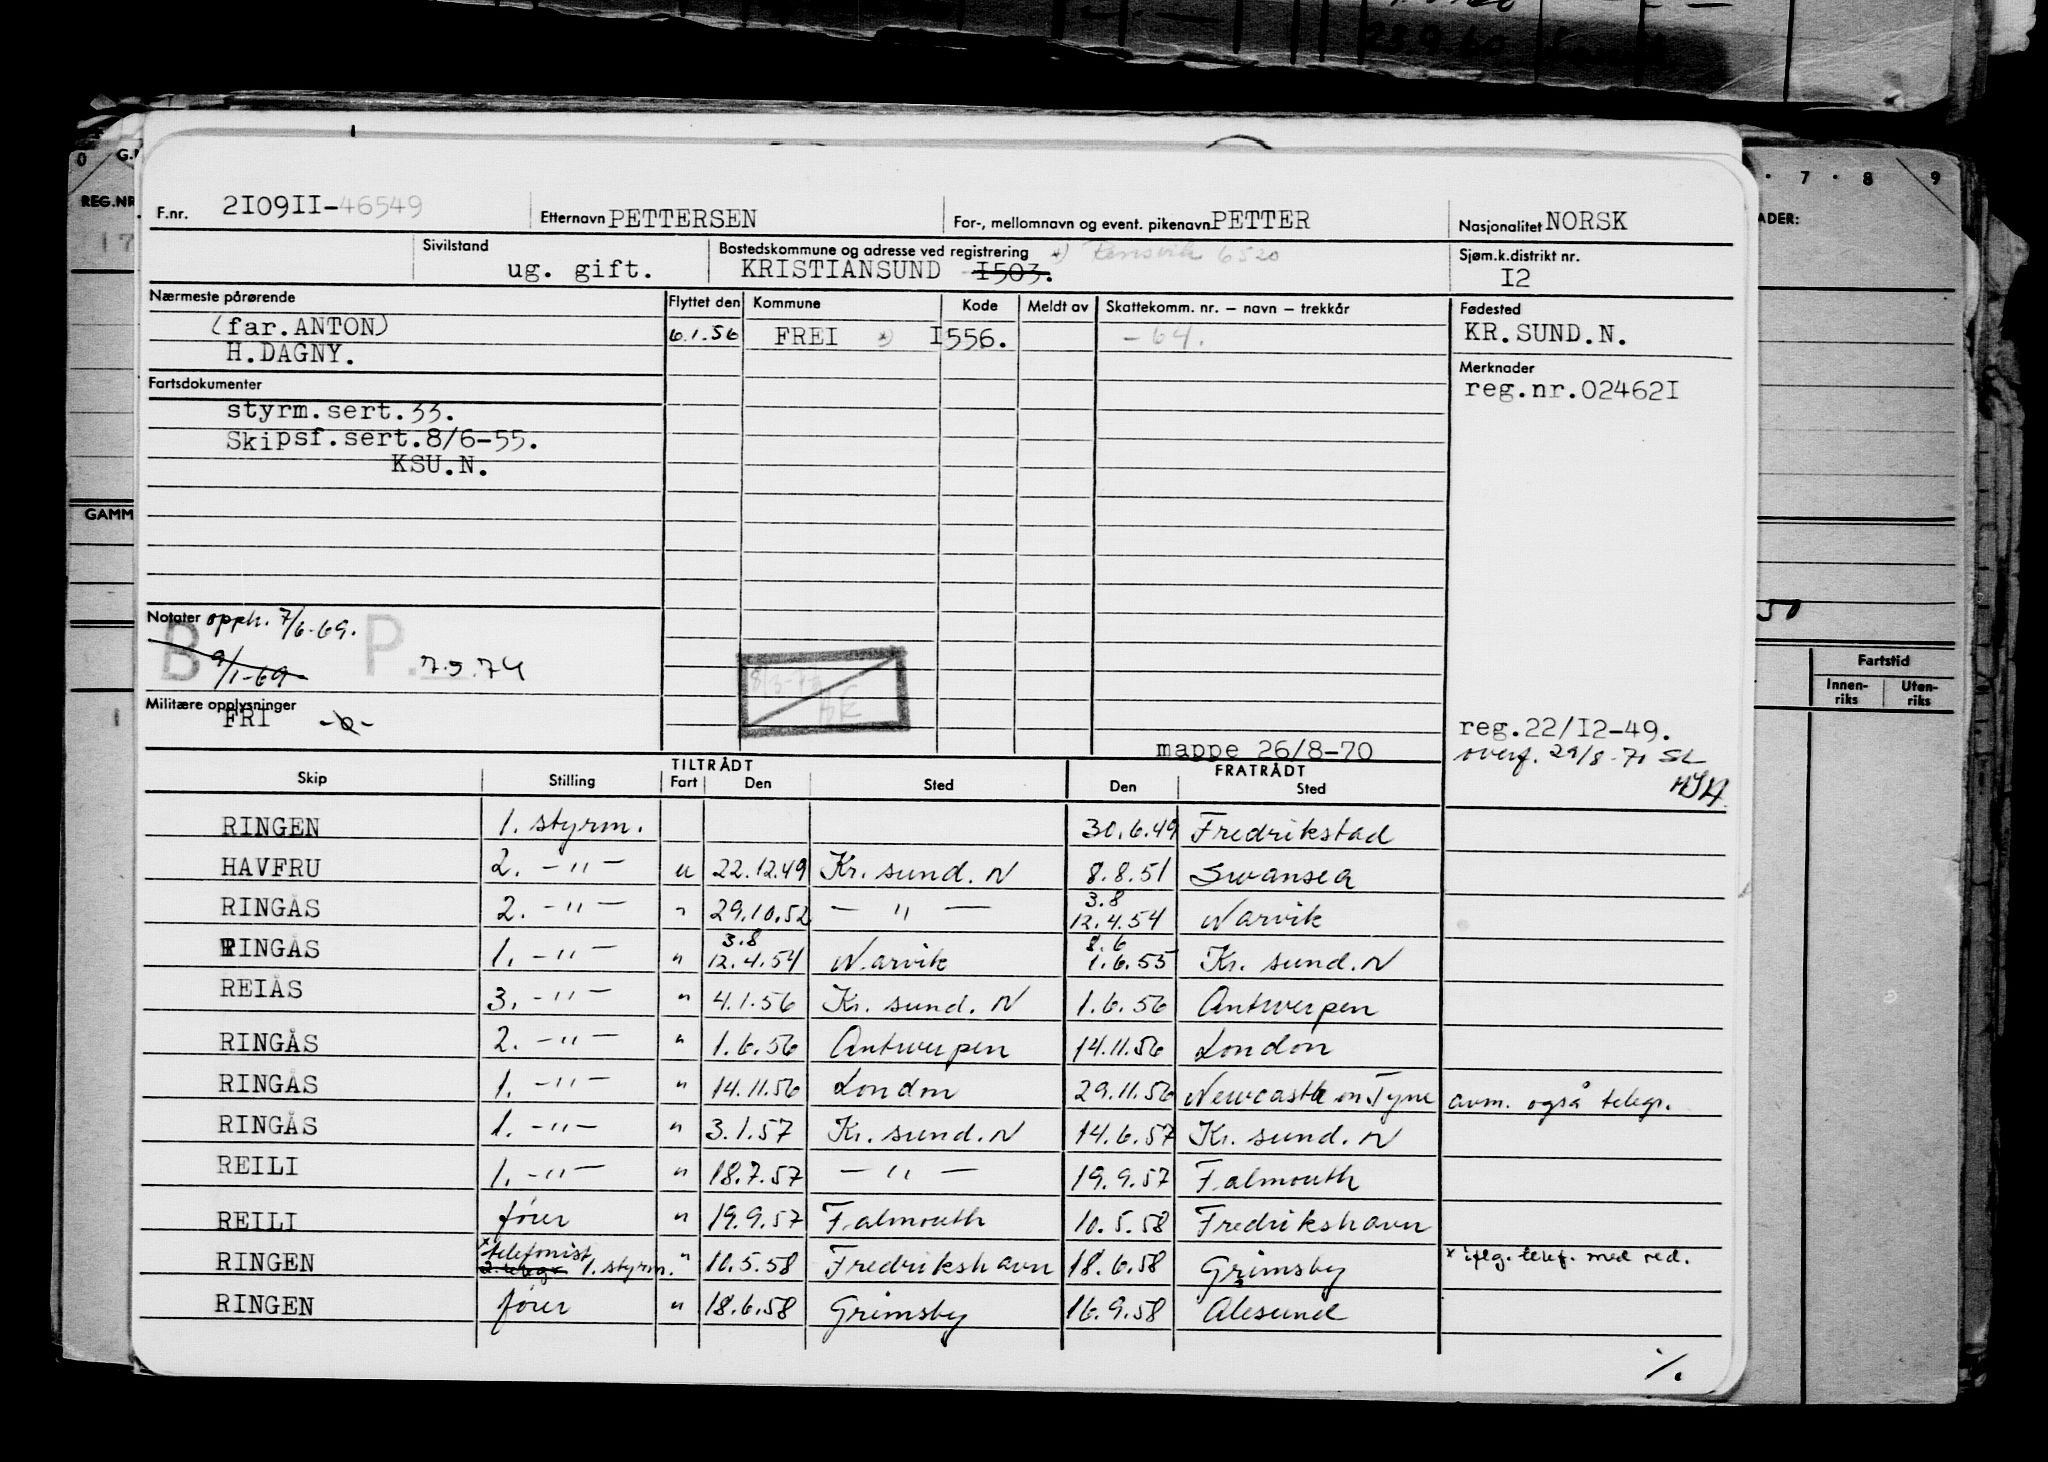 23.9.60
0 G.
7 · 8 9
REG.NR
ADER:
F.nr. 2I09II-46549 Etternavn PETTERSEN For-, mellomnavn og event. pikenavn PETTER Nasjonalitet NORSK
Sivilstand ug. gift. Bostedskommune og adresse ved registrering *) Rensvik 6520 Sjøm.k.distrikt nr.
KRISTIANSUND I503. I2
Nærmeste pårørende Flyttet den Kommune Kode Meldt av Skattekomm. nr. – navn – trekkår Fødested
(far.ANTON) 6.1.56 FREI *) I556. -64. KR.SUND.N.
H.DAGNY.
Fartsdokumenter Merknader
styrm.sert.33. reg.nr.02462I
Skipsf.sert.8/6-55.
KSU.N.
GAMM
50
Notater opph. 7/6-69.
B 9/1-69 P. 7.5.74
Fartstid
Innen-riks Uten-riks
Militære opplysninger
FRI
reg.22/I2-49.
mappe 26/8-70 overf. 29/8-71 SL
TILTRÅDT FRATRÅDT
Skip Stilling Fart Den Sted Den Sted
RINGEN 1. styrm. 30.6.49 Fredrikstad
HAVFRU 2. -"- u 22.12.49 Kr.sund.N 8.8.51 Swansea
RINGÅS 2. -"- " 29.10.52 -"- 3.8 12.4.54 Narvik
RINGÅS 1. -"- " 3.8 12.4.54 Narvik 8.6 1.6.55 Kr.sund.N
REIÅS 3. -"- " 4.1.56 Kr.sund.N 1.6.56 Antwerpen
RINGÅS 2. -"- " 1.6.56 Antwerpen 14.11.56 London
RINGÅS 1. -"- " 14.11.56 London 29.11.56 Newcastle on Tyne avm. også telegr.
RINGÅS 1. -"- " 3.1.57 Kr.sund.N 14.6.57 Kr.sund.N
REILI 1. -"- " 18.7.57 -"- 19.9.57 Falmouth
REILI fører " 19.9.57 Falmouth 10.5.58 Fredrikshavn
RINGEN x telefonist 2. telegr 1. styrm. " 16.5.58 Fredrikshavn 18.6.58 Grimsby x iflg. telef. med red.
RINGEN fører " 18.6.58 Grimsby 16.9.58 Alesund